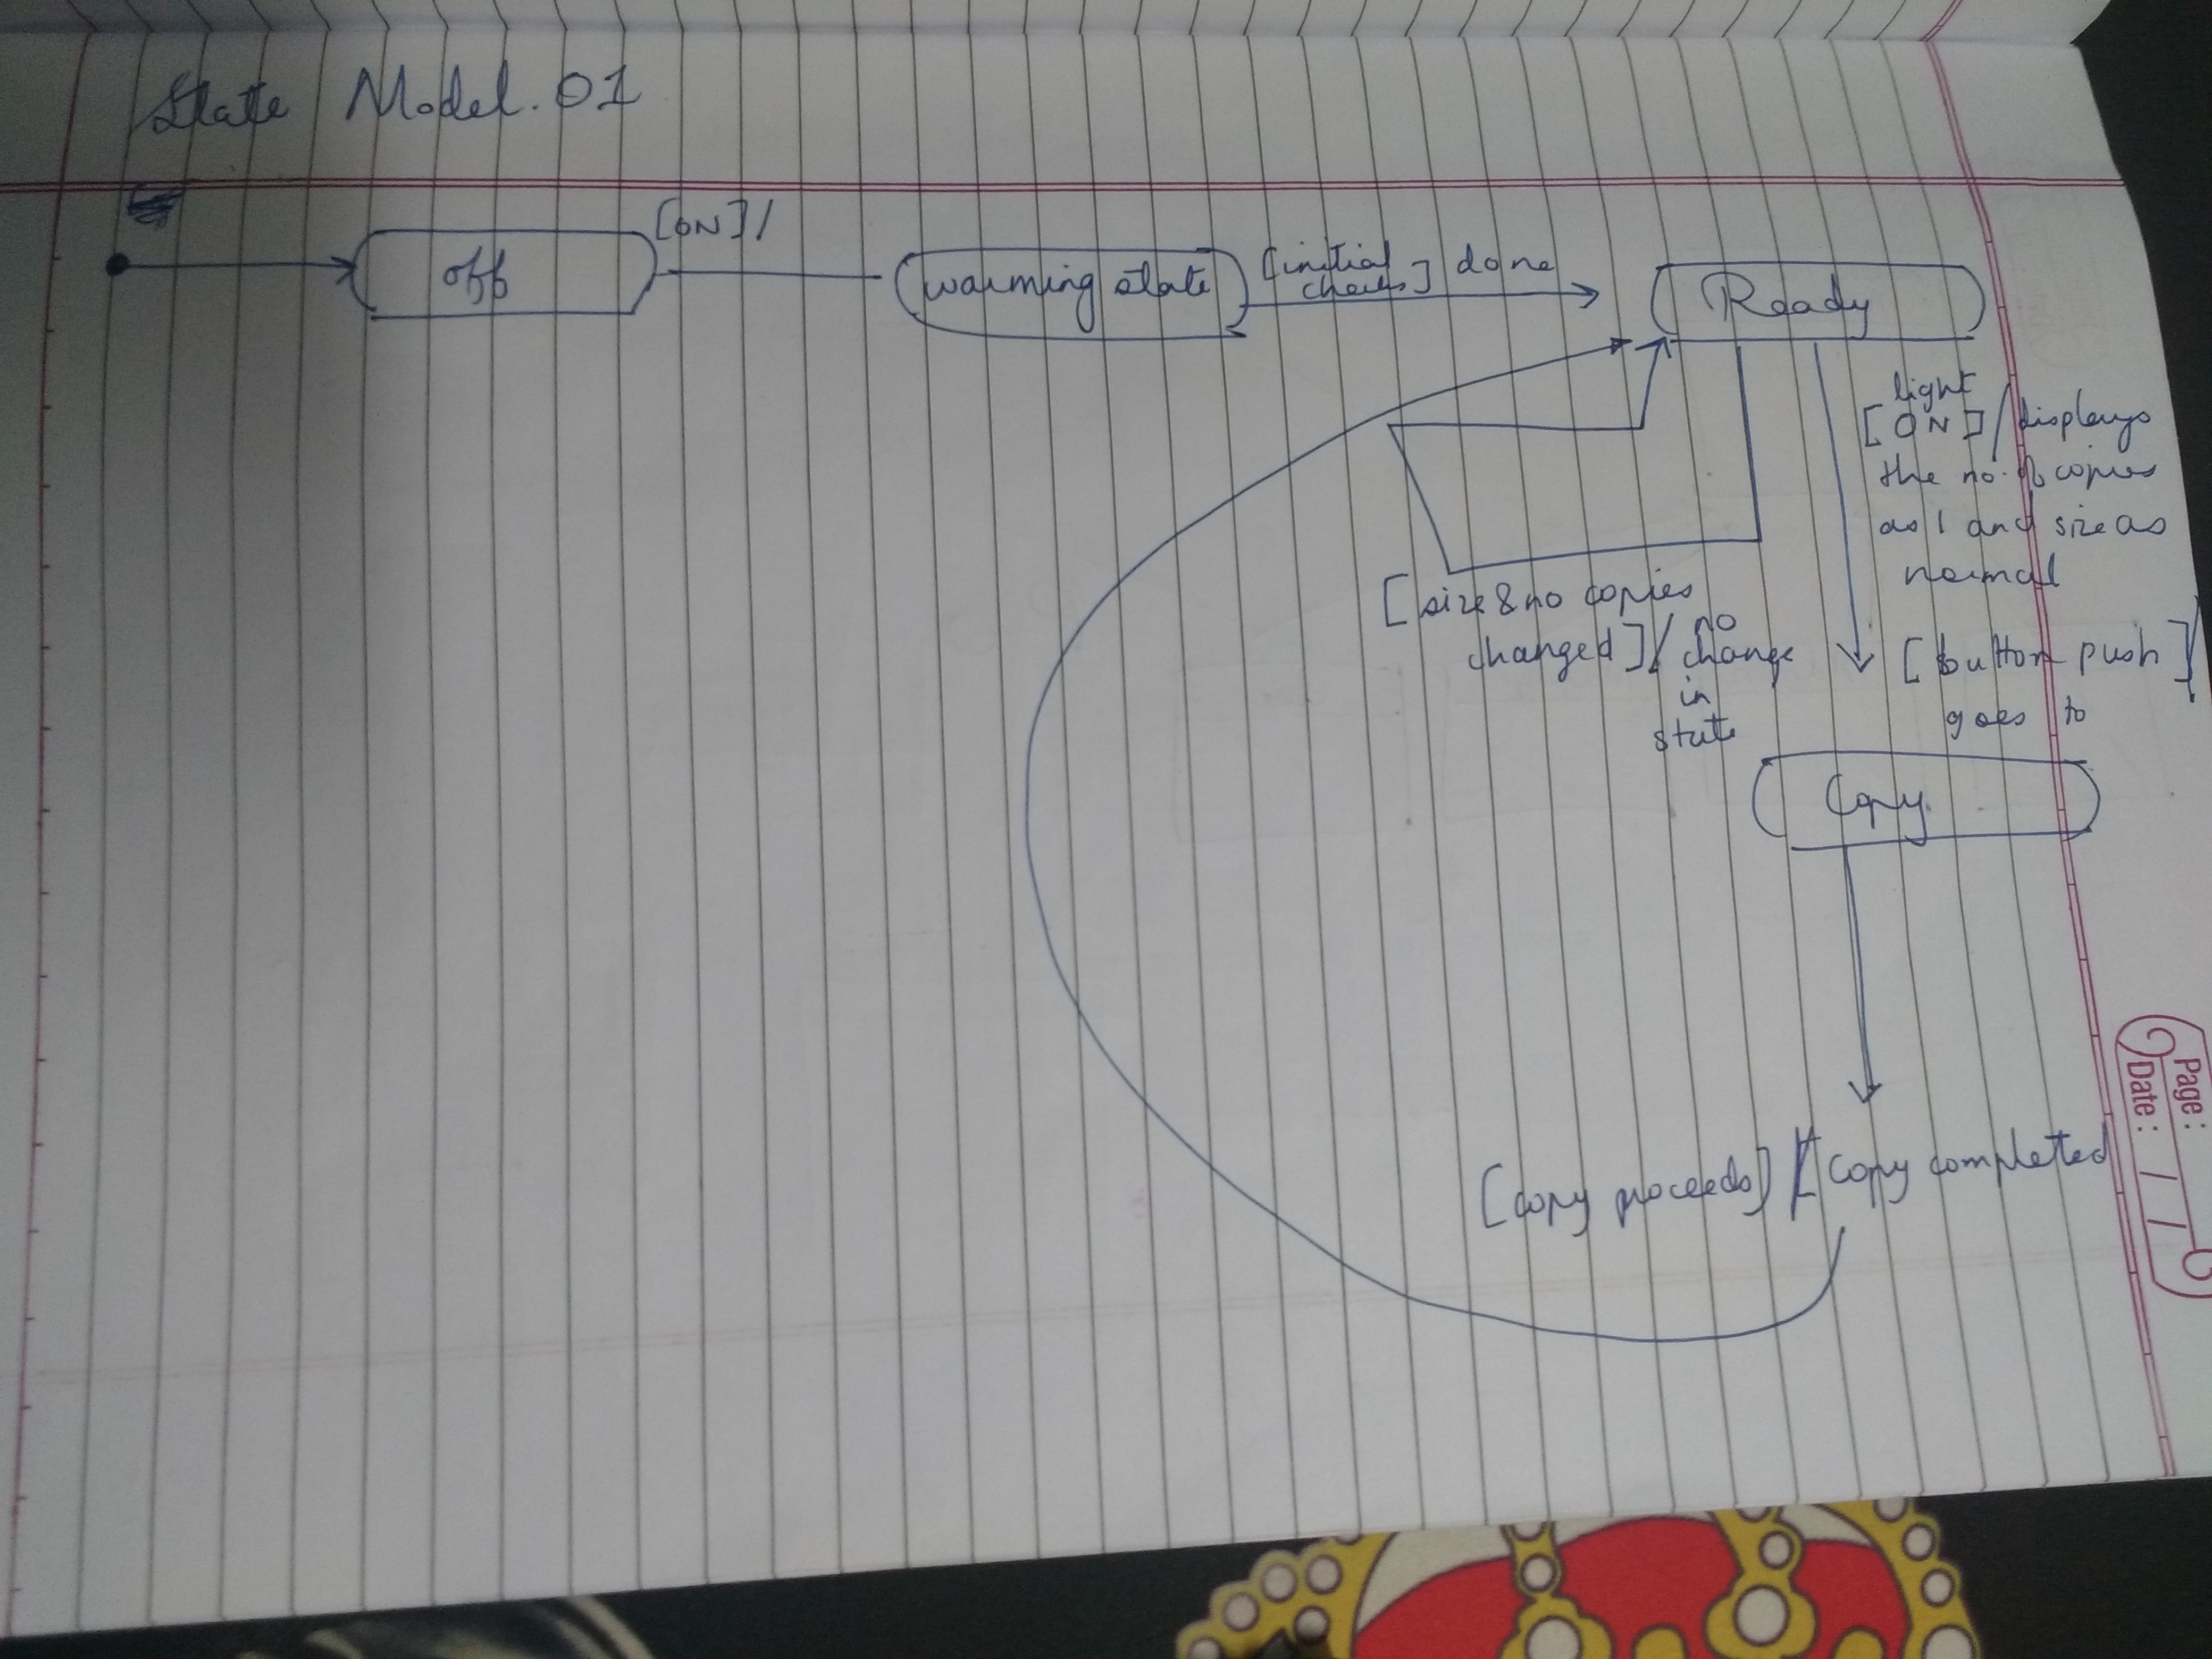 State Model. 01
[ON] /
off
warming state
[initial
checks] done
Ready
light
[ON] / displays
the no. of copies
as 1 and size as
normal
[size & no copies
changed] / no
change
in
state
[button push] /
goes to
Copy
[copy proceeds] / [copy completed
Page:
Date: / /